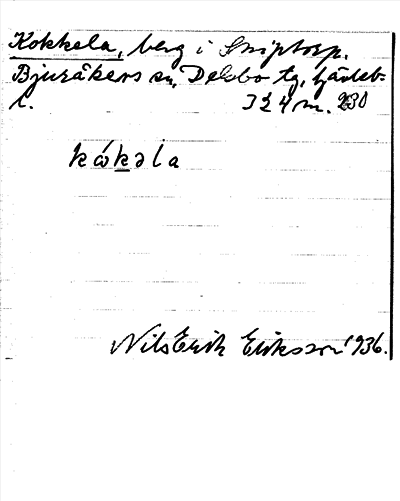 Kokkela, berg i Sniptorp.
Bjuråkers sn, Delsbo tg, Gävleb-
l. 324 m. 230
kókəla
Nils Erik Eriksson 1936.